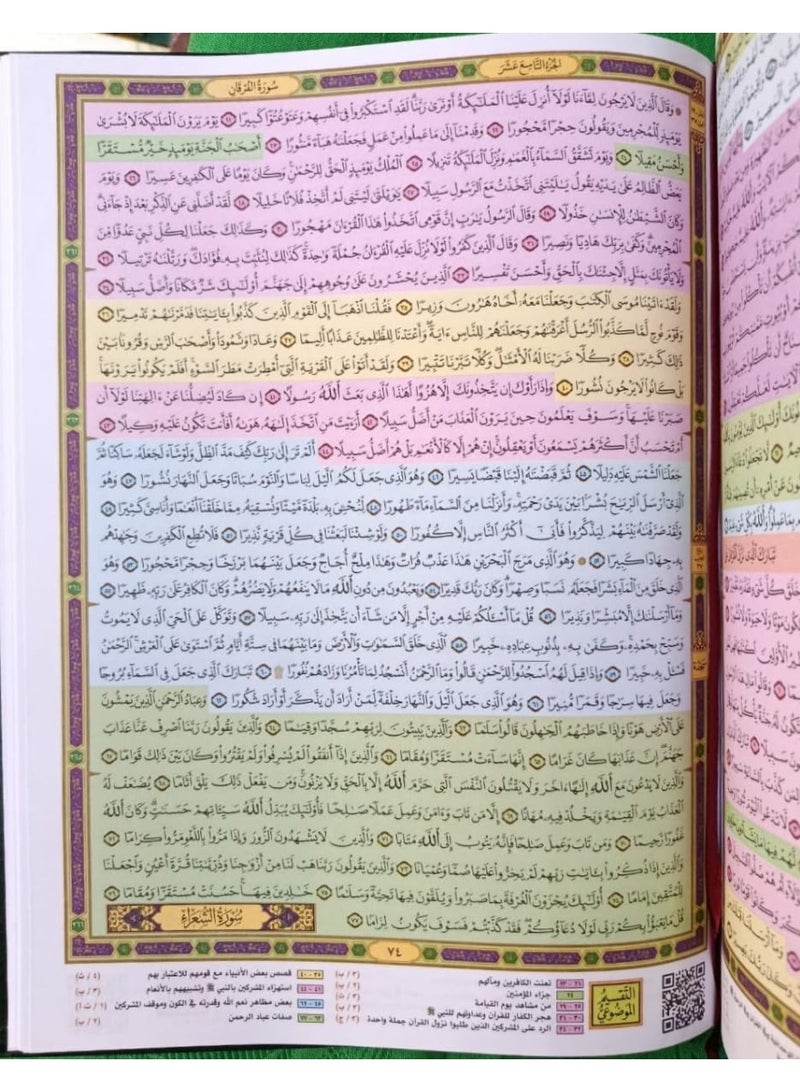 الجزء التاسع عشر
سورة الفرقان
وقال الذين لا يرجون لقاءنا لولا أنزل علينا الملئكة أو نرى ربنا لقد استكبروا في أنفسهم وعتو عتوا كبيرا ٢١ يوم يرون الملئكة لا بشرى
يومئذ للمجرمين ويقولون حجرا محجورا ٢٢ وقدمنا إلى ما عملوا من عمل فجعلنه هباء منثورا ٢٣ أصحب الجنة يومئذ خير مستقرا
وأحسن مقيلا ٢٤ ويوم تشقق السماء بالغمم ونزل الملئكة تنزيلا ٢٥ الملك يومئذ الحق للرحمن وكان يوما على الكفرين عسيرا ٢٦ ويوم
يعض الظالم على يديه يقول يليتني اتخذت مع الرسول سبيلا ٢٧ يويلتى ليتني لم أتخذ فلانا خليلا ٢٨ لقد أضلني عن الذكر بعد إذ جاءني
وكان الشيطن للإنسن خذولا ٢٩ وقال الرسول يرب إن قومي اتخذوا هذا القرءان مهجورا ٣٠ وكذلك جعلنا لكل نبي عدوا من
المجرمين وكفى بربك هاديا ونصيرا ٣١ وقال الذين كفروا لولا نزل عليه القرءان جملة وحدة كذلك لنثبت به فؤادك ورتلنه ترتيلا ٣٢
ولا يأتونك بمثل إلا جئنك بالحق وأحسن تفسيرا ٣٣ الذين يحشرون على وجوههم إلى جهنم أولئك شر مكانا وأضل سبيلا ٣٤
ولقد ءاتينا موسى الكتب وجعلنا معه أخاه هرون وزيرا ٣٥ فقلنا اذهبا إلى القوم الذين كذبوا بـايتنا فدمرنهم تدميرا ٣٦
وقوم نوح لما كذبوا الرسل أغرقنهم وجعلنهم للناس ءاية وأعتدنا للظلمين عذابا أليما ٣٧ وعادا وثمودا وأصحب الرس وقرونا بين
ذلك كثيرا ٣٨ وكلا ضربنا له الأمثل وكلا تبرنا تتبيرا ٣٩ ولقد أتوا على القرية التي أمطرت مطر السوء أفلم يكونوا يرونها
بل كانوا لا يرجون نشورا ٤٠ وإذا رأوك إن يتخذونك إلا هزوا أهذا الذي بعث الله رسولا ٤١ إن كاد ليضلنا عن ءالهتنا لولا أن
صبرنا عليها وسوف يعلمون حين يرون العذاب من أضل سبيلا ٤٢ أرءيت من اتخذ إلهه هوىه أفأنت تكون عليه وكيلا ٤٣
أم تحسب أن أكثرهم يسمعون أو يعقلون إن هم إلا كالأنعم بل هم أضل سبيلا ٤٤ ألم تر إلى ربك كيف مد الظل ولو شاء لجعله ساكنا ثم
جعلنا الشمس عليه دليلا ٤٥ ثم قبضنه إلينا قبضا يسيرا ٤٦ وهو الذي جعل لكم اليل لباسا والنوم سباتا وجعل النهار نشورا ٤٧ وهو
الذي أرسل الريح بشرا بين يدي رحمته وأنزلنا من السماء ماء طهورا ٤٨ لنحي به بلدة ميتا ونسقيه مما خلقنا أنعما وأناسي كثيرا ٤٩
ولقد صرفنه بينهم ليذكروا فأبى أكثر الناس إلا كفورا ٥٠ ولو شئنا لبعثنا في كل قرية نذيرا ٥١ فلا تطع الكفرين وجهدهم
به جهادا كبيرا ٥٢ وهو الذي مرج البحرين هذا عذب فرات وهذا ملح أجاج وجعل بينهما برزخا وحجرا محجورا ٥٣ وهو
الذي خلق من الماء بشرا فجعله نسبا وصهرا وكان ربك قديرا ٥٤ ويعبدون من دون الله ما لا ينفعهم ولا يضرهم وكان الكافر على ربه ظهيرا ٥٥
وما أرسلنك إلا مبشرا ونذيرا ٥٦ قل ما أسـلكم عليه من أجر إلا من شاء أن يتخذ إلى ربه سبيلا ٥٧ وتوكل على الحي الذي لا يموت
وسبح بحمده وكفى به بذنوب عباده خبيرا ٥٨ الذي خلق السموت والأرض وما بينهما في ستة أيام ثم استوى على العرش الرحمن
فسـل به خبيرا ٥٩ وإذا قيل لهم اسجدوا للرحمن قالوا وما الرحمن أنسجد لما تأمرنا وزادهم نفورا ۩ ٦٠ تبارك الذي جعل في السماء بروجا
وجعل فيها سرجا وقمرا منيرا ٦١ وهو الذي جعل اليل والنهار خلفة لمن أراد أن يذكر أو أراد شكورا ٦٢ وعباد الرحمن الذين يمشون
على الأرض هونا وإذا خاطبهم الجهلون قالوا سلما ٦٣ والذين يبيتون لربهم سجدا وقيما ٦٤ والذين يقولون ربنا اصرف عنا عذاب
جهنم إن عذابها كان غراما ٦٥ إنها ساءت مستقرا ومقاما ٦٦ والذين إذا أنفقوا لم يسرفوا ولم يقتروا وكان بين ذلك قواما ٦٧
والذين لا يدعون مع الله إلها ءاخر ولا يقتلون النفس التي حرم الله إلا بالحق ولا يزنون ومن يفعل ذلك يلق أثاما ٦٨ يضعف له
العذاب يوم القيمة ويخلد فيه مهانا ٦٩ إلا من تاب وءامن وعمل عملا صلحا فأولئك يبدل الله سيـاتهم حسنت وكان الله
غفورا رحيما ٧٠ ومن تاب وعمل صلحا فإنه يتوب إلى الله متابا ٧١ والذين لا يشهدون الزور وإذا مروا باللغو مروا كراما ٧٢
والذين إذا ذكروا بـايت ربهم لم يخروا عليها صما وعميانا ٧٣ والذين يقولون ربنا هب لنا من أزوجنا وذريتنا قرة أعين واجعلنا
للمتقين إماما ٧٤ أولئك يجزون الغرفة بما صبروا ويلقون فيها تحية وسلما ٧٥ خلدين فيها حسنت مستقرا ومقاما ٧٦
قل ما يعبؤا بكم ربي لولا دعاؤكم فقد كذبتم فسوف يكون لزاما ٧٧
سورة الشعراء
٧٤
التقسيم الموضوعي
٢١ - ٢٣ تعنت الكافرين ومآلهم (٣ / ب)
٢٤ جزاء المؤمنين
٢٥ - ٢٩ من مشاهد يوم القيامة
٣٠ - ٣١ هجر الكفار للقرآن وعداوتهم للنبي ﷺ
٣٢ - ٣٤ الرد على المشركين الذين طلبوا نزول القرآن جملة واحدة
٣٥ - ٤٠ قصص بعض الأنبياء مع قومهم للاعتبار بهم
٤١ - ٤٤ استهزاء المشركين بالنبي ﷺ وتشبيههم بالأنعام
٤٥ - ٦٢ بعض مظاهر نعم الله وقدرته في الكون وموقف المشركين
٦٣ - ٧٧ صفات عباد الرحمن